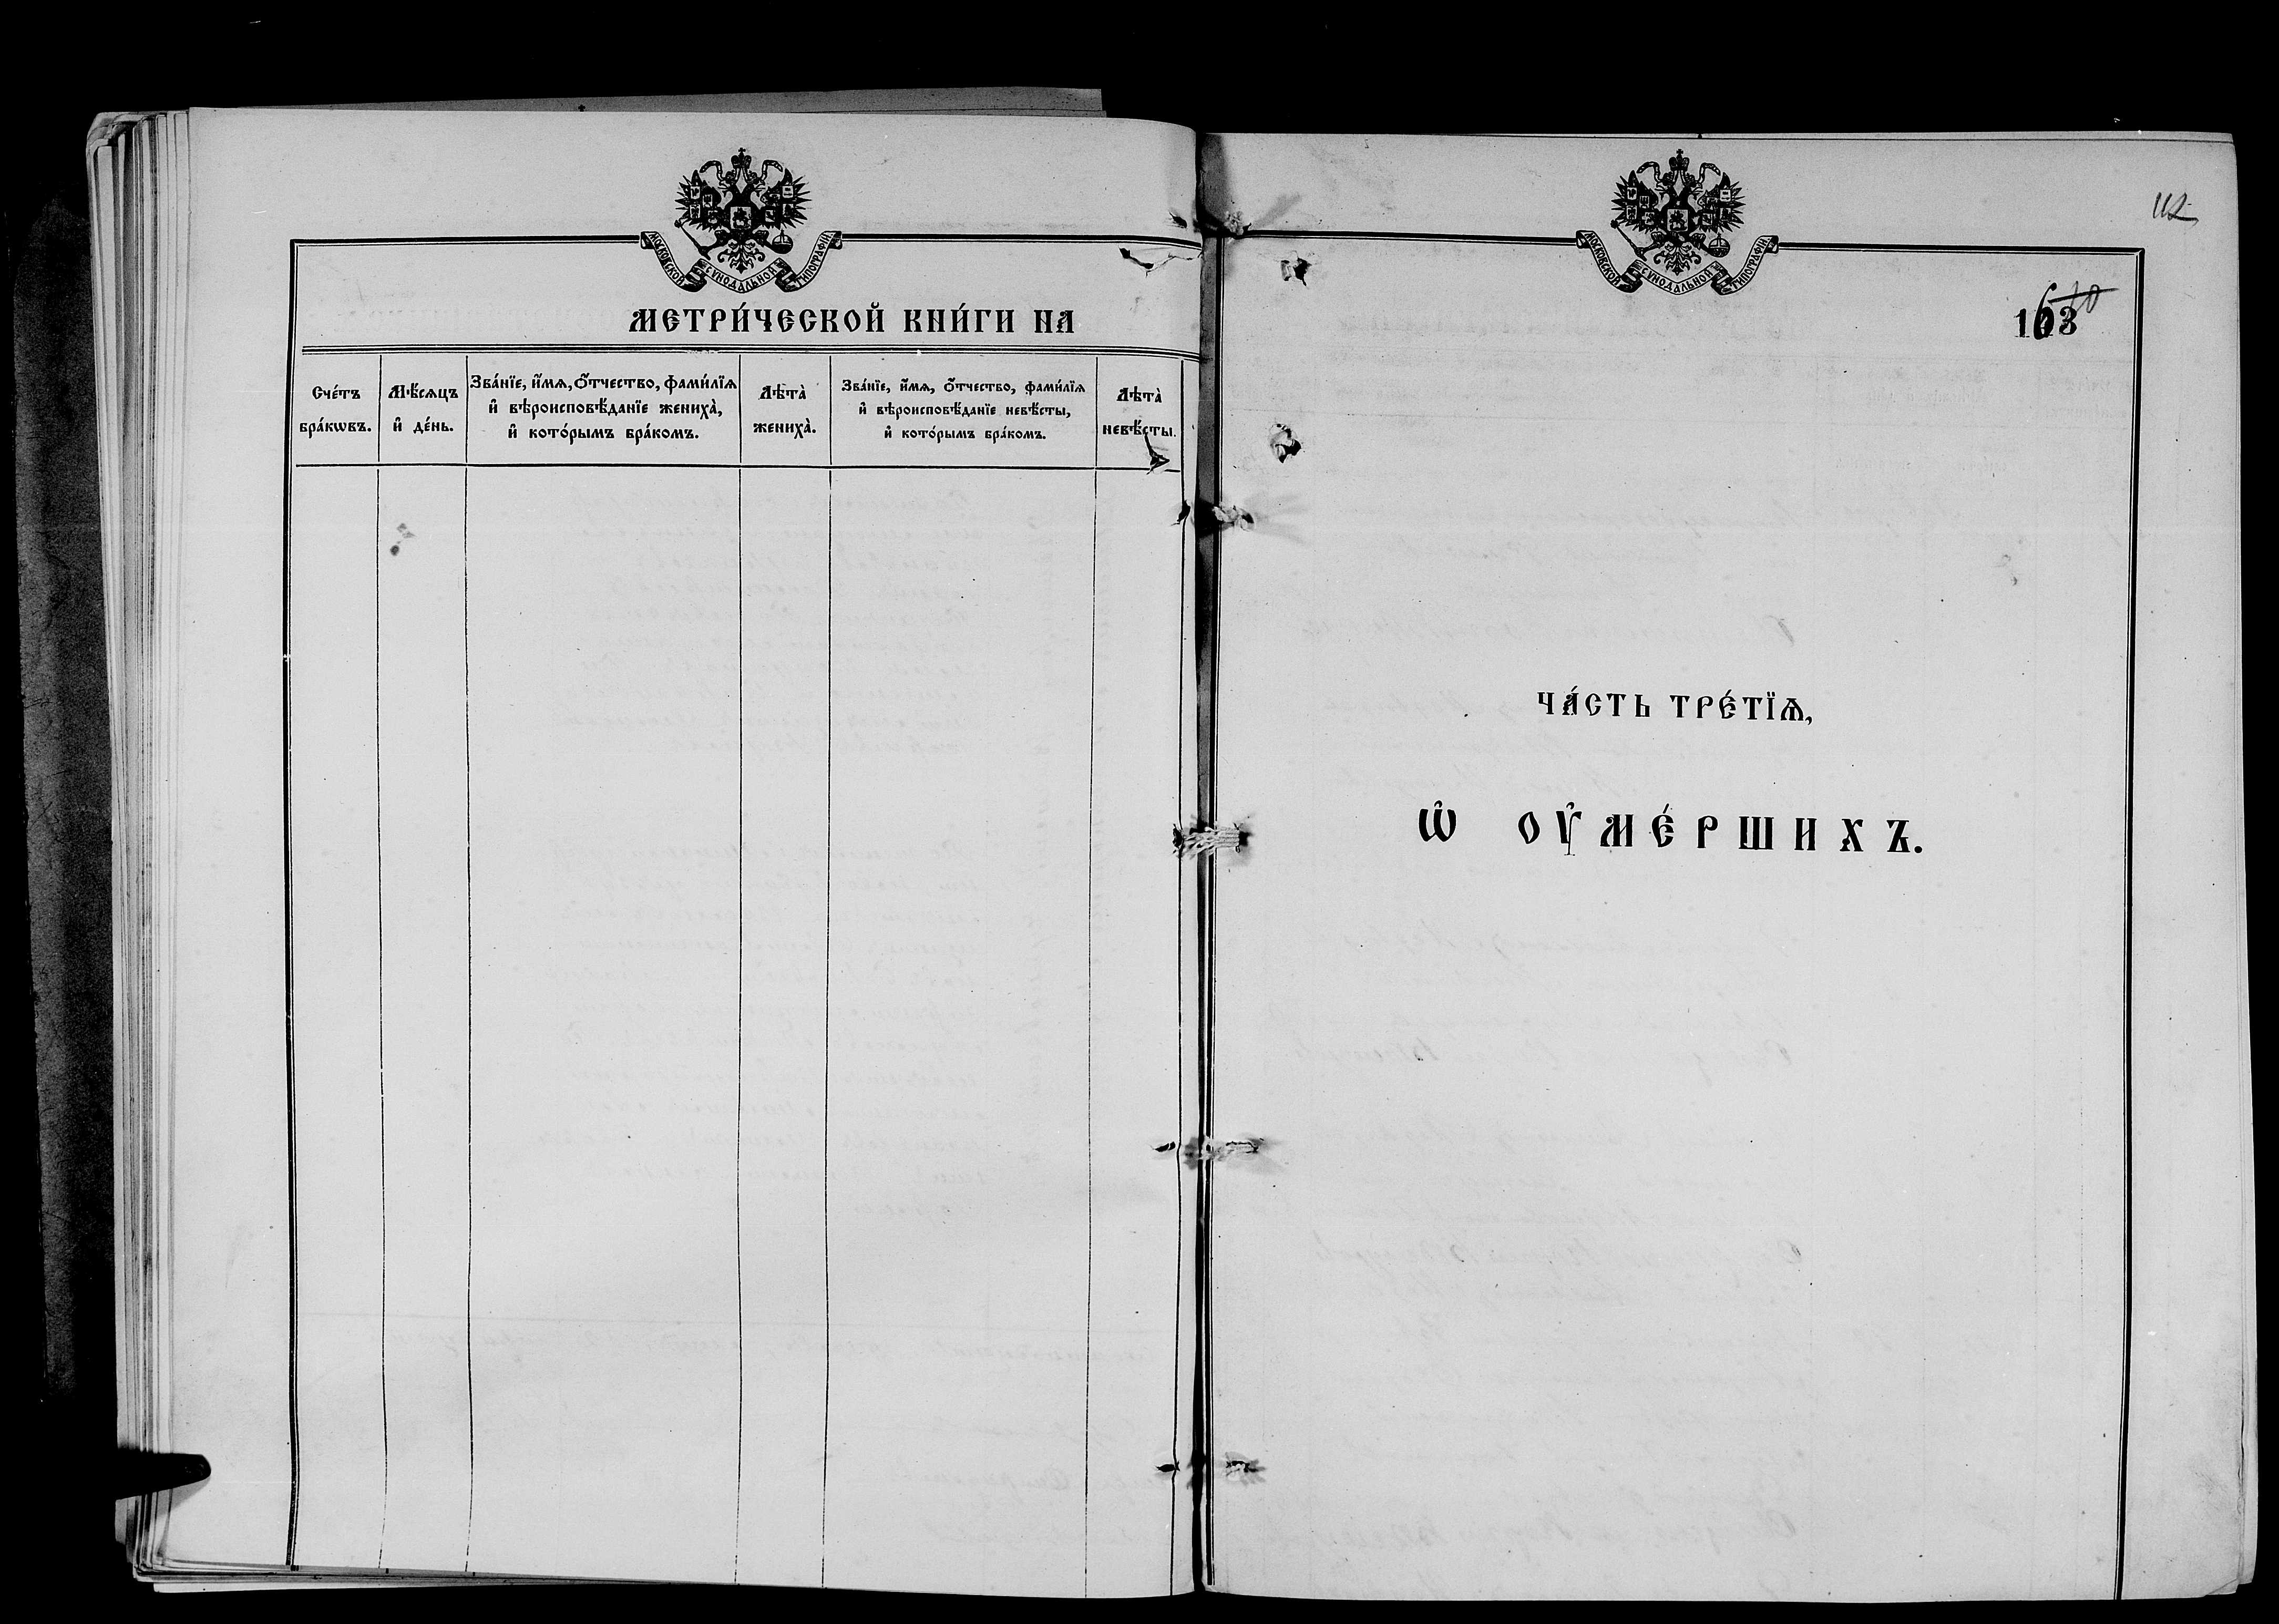 МОСКОВСКОЙ СѴНОДАЛЬНОЙ ТИПОГРАФІИ
МЕТРИ́ЧЕСКОЙ КНИ́ГИ НА
Сче́тъ бра́кѡвъ.
Мѣ́сѧцъ и҆ де́нь.
Зва́нїе, и҆́мѧ, ѻ҆́тчество, фами́лїѧ
и҆ вѣроисповѣ́данїе жениха̀,
и҆ кото́рымъ бра́комъ.
Лѣта̀ жениха̀.
Зва́нїе, и҆́мѧ, ѻ҆́тчество, фами́лїѧ
и҆ вѣроисповѣ́данїе невѣ́сты,
и҆ кото́рымъ бра́комъ.
Лѣта̀ невѣ́сты.
112
МОСКОВСКОЙ СѴНОДАЛЬНОЙ ТИПОГРАФІИ
163
ЧА́СТЬ ТРЕ́ТЇѦ,
Ѡ҆ ОУ҆МЕ́РШИХЪ.